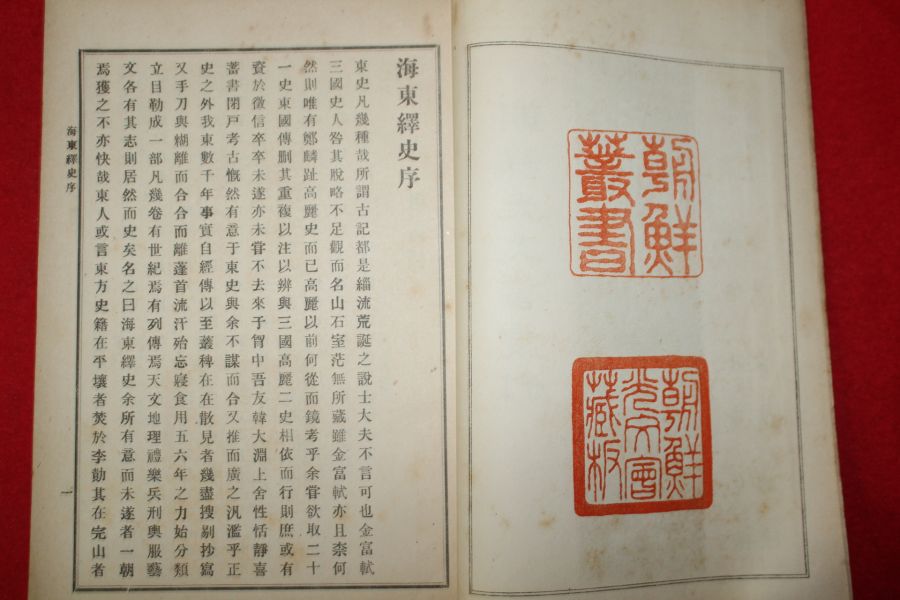 朝鮮
叢書
朝鮮
光文會
藏板
海東繹史序
東史凡幾種哉所謂古記都是緇流荒誕之說士大夫不言可也金富軾
三國史人咎其脫略不足觀而名山石室茫無所藏雖金富軾亦且柰何
然則唯有鄭麟趾高麗史而已高麗以前何從而鏡考乎余甞欲取二十
一史東國傳刪其重複以注以辨與三國高麗二史相依而行則庶或有
資於徵信卒卒未遂亦未甞不去來于胷中吾友韓大淵上舍性恬靜喜
蓄書閉戶考古慨然有意于東史與余不謀而合又推而廣之汎濫乎正
史之外我東數千年事實自經傳以至叢稗在在散見者幾盡搜剔抄寫
又手刀與糊離而合合而離蓬首流汗殆忘寢食用五六年之力始分類
立目勒成一部凡幾卷有世紀焉有列傳焉天文地理禮樂兵刑輿服藝
文各有其志則居然而史矣名之曰海東繹史余所有意而未遂者一朝
焉獲之不亦快哉東人或言東方史籍在平壤者焚於李勣其在完山者
海東繹史序
一